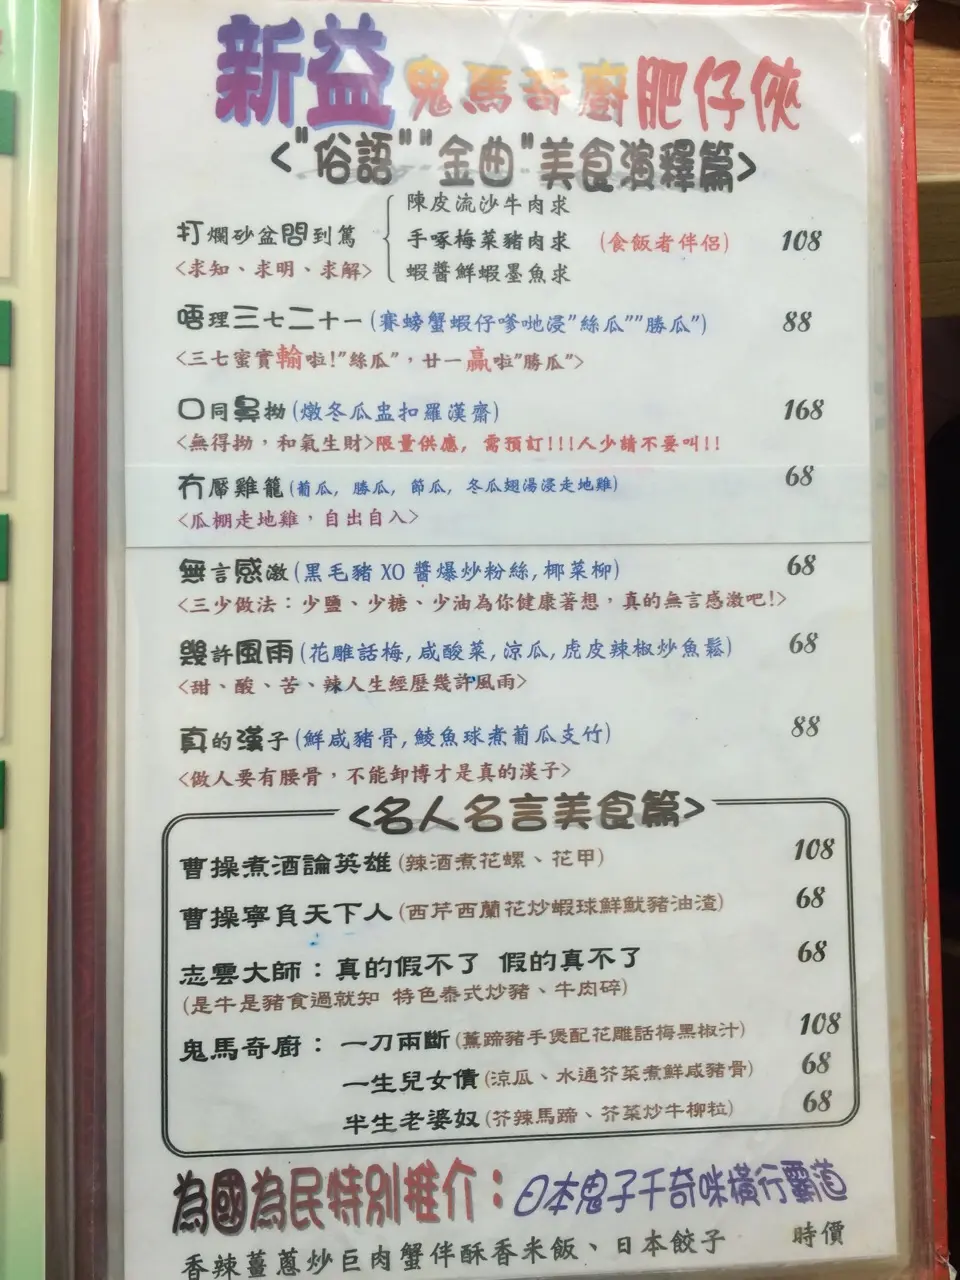 新益鬼馬奇廚肥仔俠
<"俗語""金曲"美食演釋篇>
陳皮流沙牛肉求
打爛砂盆問到篤 手啄梅菜豬肉求 (食飯者伴侶) 108
<求知、求明、求解> 蝦醬鮮蝦墨魚求
唔理三七二十一(賽螃蟹蝦仔嗲吔浸"絲瓜""勝瓜") 88
<三七蜜實輸啦!"絲瓜",廿一贏啦"勝瓜">
口同鼻拗(燉冬瓜盅扣羅漢齋) 168
<無得拗,和氣生財>限量供應,需預訂!!!人少請不要叫!!
冇厴雞籠(葡瓜,勝瓜,節瓜,冬瓜翅湯浸走地雞) 68
<瓜棚走地雞,自出自入>
無言感激(黑毛豬XO醬爆炒粉絲,椰菜柳) 68
<三少做法:少鹽、少糖、少油為你健康著想,真的無言感激吧!>
幾許風雨(花雕話梅,咸酸菜,涼瓜,虎皮辣椒炒魚鬆) 68
<甜、酸、苦、辣人生經歷幾許風雨>
真的漢子(鮮咸豬骨,鯪魚球煮葡瓜支竹) 88
<做人要有腰骨,不能卸博才是真的漢子>
<名人名言美食篇>
曹操煮酒論英雄(辣酒煮花螺、花甲) 108
曹操寧負天下人(西芹西蘭花炒蝦球鮮魷豬油渣) 68
志雲大師:真的假不了 假的真不了 68
(是牛是豬食過就知 特色泰式炒豬、牛肉碎)
鬼馬奇廚:一刀兩斷(薰蹄豬手煲配花雕話梅黑椒汁) 108
一生兒女債(涼瓜、水通芥菜煮鮮咸豬骨) 68
半生老婆奴(芥辣馬蹄、芥菜炒牛柳粒) 68
為國為民特別推介:日本鬼子千奇咪橫行霸道
香辣薑蔥炒巨肉蟹伴酥香米飯、日本餃子 時價